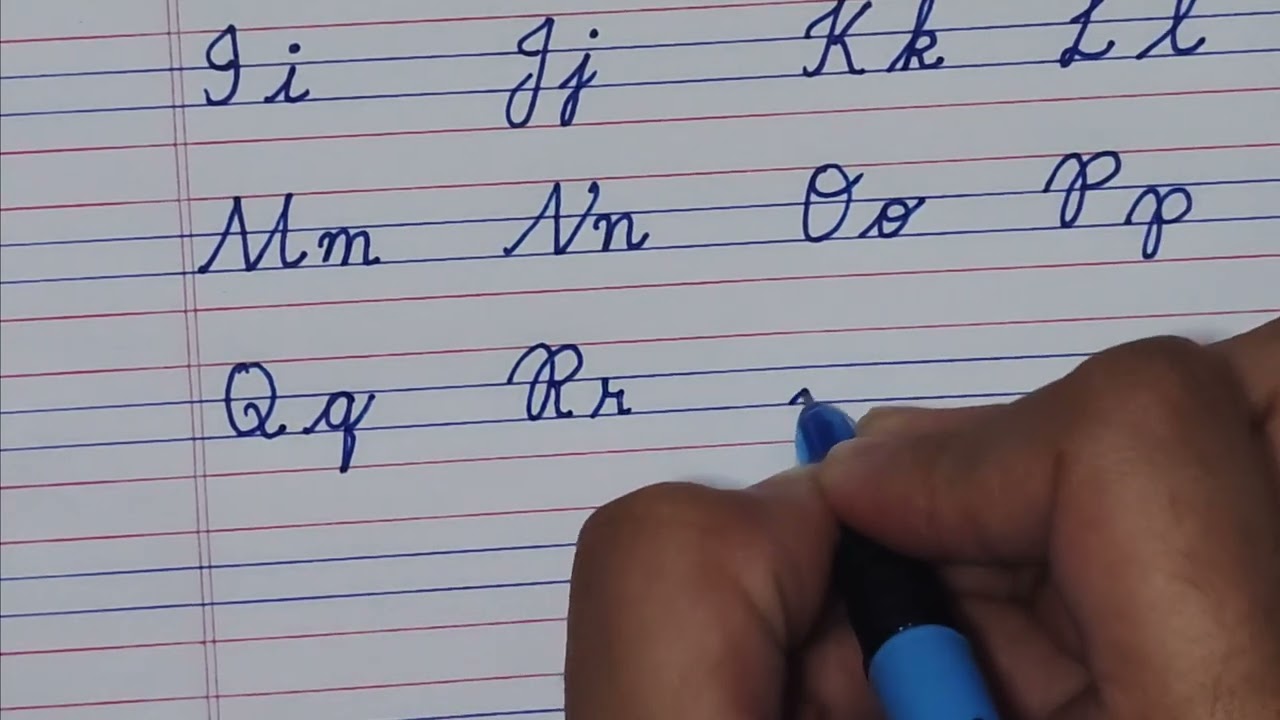 I i J j K k L l
M m N n O o P p
Q q R r